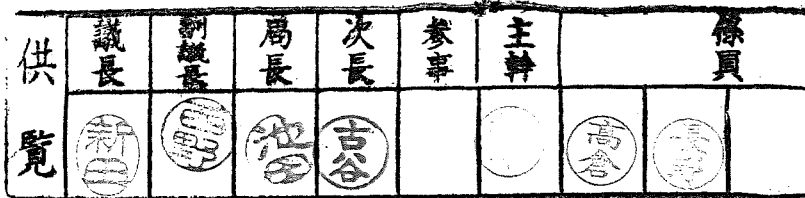 供覧
議長 副議長 局長 次長 参事 主幹 係員
新田 池田 古谷 高倉